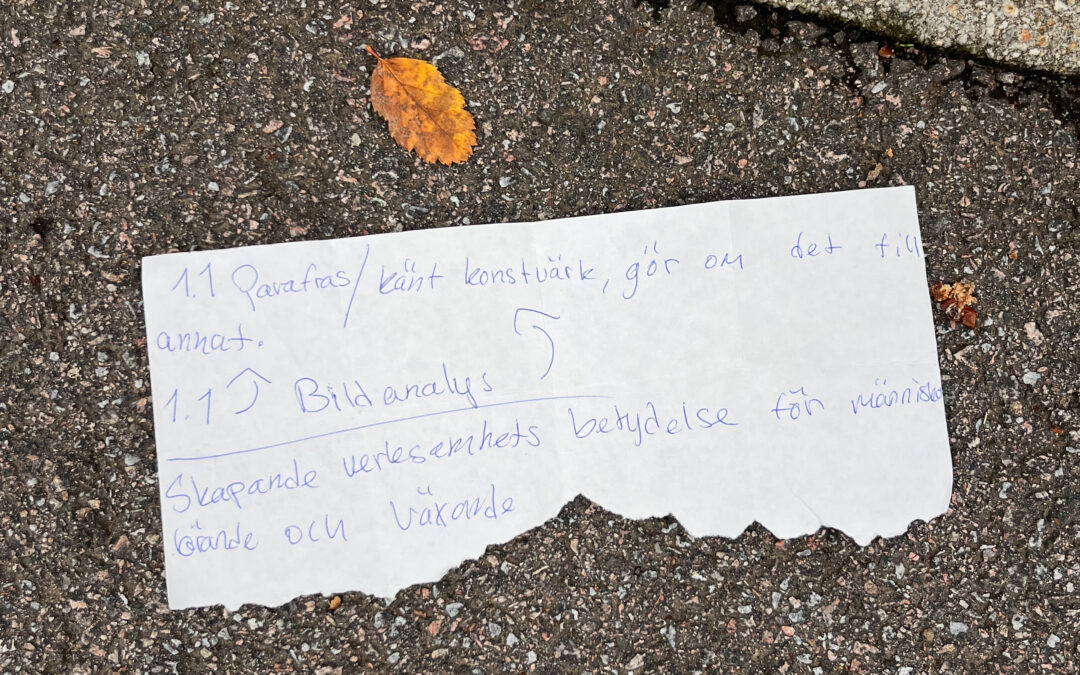 1.1 Parafras/känt konstvärk, gör om det till
annat.
1.1 Bildanalys
Skapande verksamhets betydelse för människo
och växande